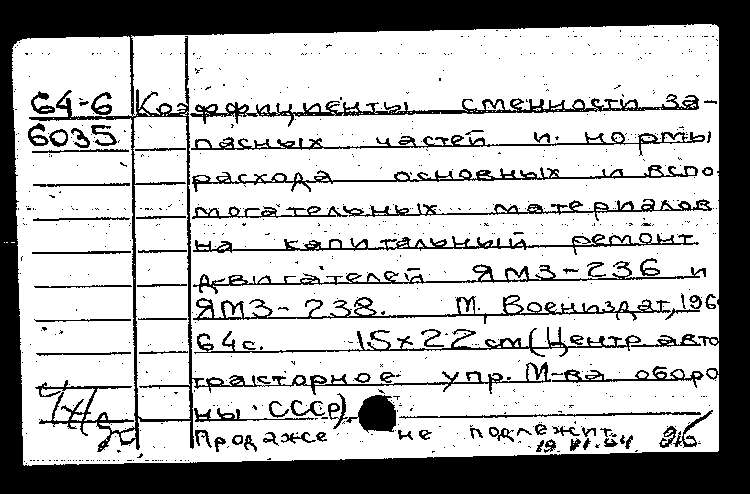 64-6 Коэффициенты сменности за-
6035 пасных частей и нормы
расхода основных и вспо
могательных материалов
на капитальный ремонт
двигателей ЯМЗ-236 и
ЯМЗ-238. М, Воениздат, 196
64с. 15×22 см (Центр авто
тракторное упр. М-ва оборо
ны СССР)
Продаже не подлежит